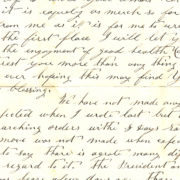 it is equally as much so for
from me as it is for me to wr
the first place I will let y
the enjoyment of good health
rest you more than any thing
ever hoping this may find y
blessings.
We have not made any
pected when I wrote last but
marching orders with 3 days ra
move was not made when expe
to say there is agreat many di
regard to it. The President a
here a few days